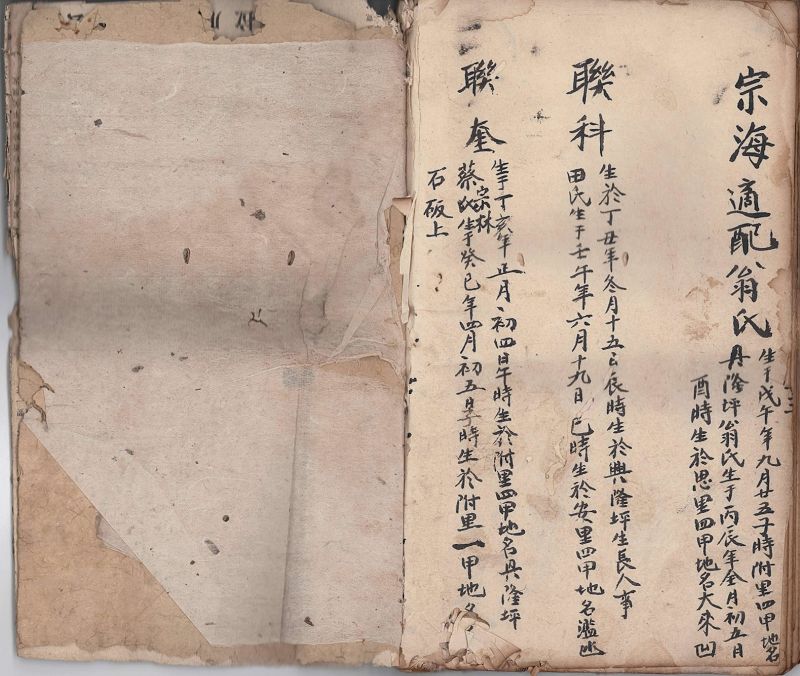 宗海適配翁氏
生于戊午年九月廿五子時附里四甲地名
丹隆坪翁氏生于丙辰年全月初五日
酉時生於思里四甲地名大來凹
聯科
生於丁丑年冬月十五日辰時生於興隆坪生長人事
田氏生于壬午年六月十九日巳時生於安里四甲地名濫
聯奎
生于丁亥年正月初四日午時生於附里四甲地名興隆坪
宗林
蔡氏生于癸巳年四月初五日子時生於附里一甲地名
石板上